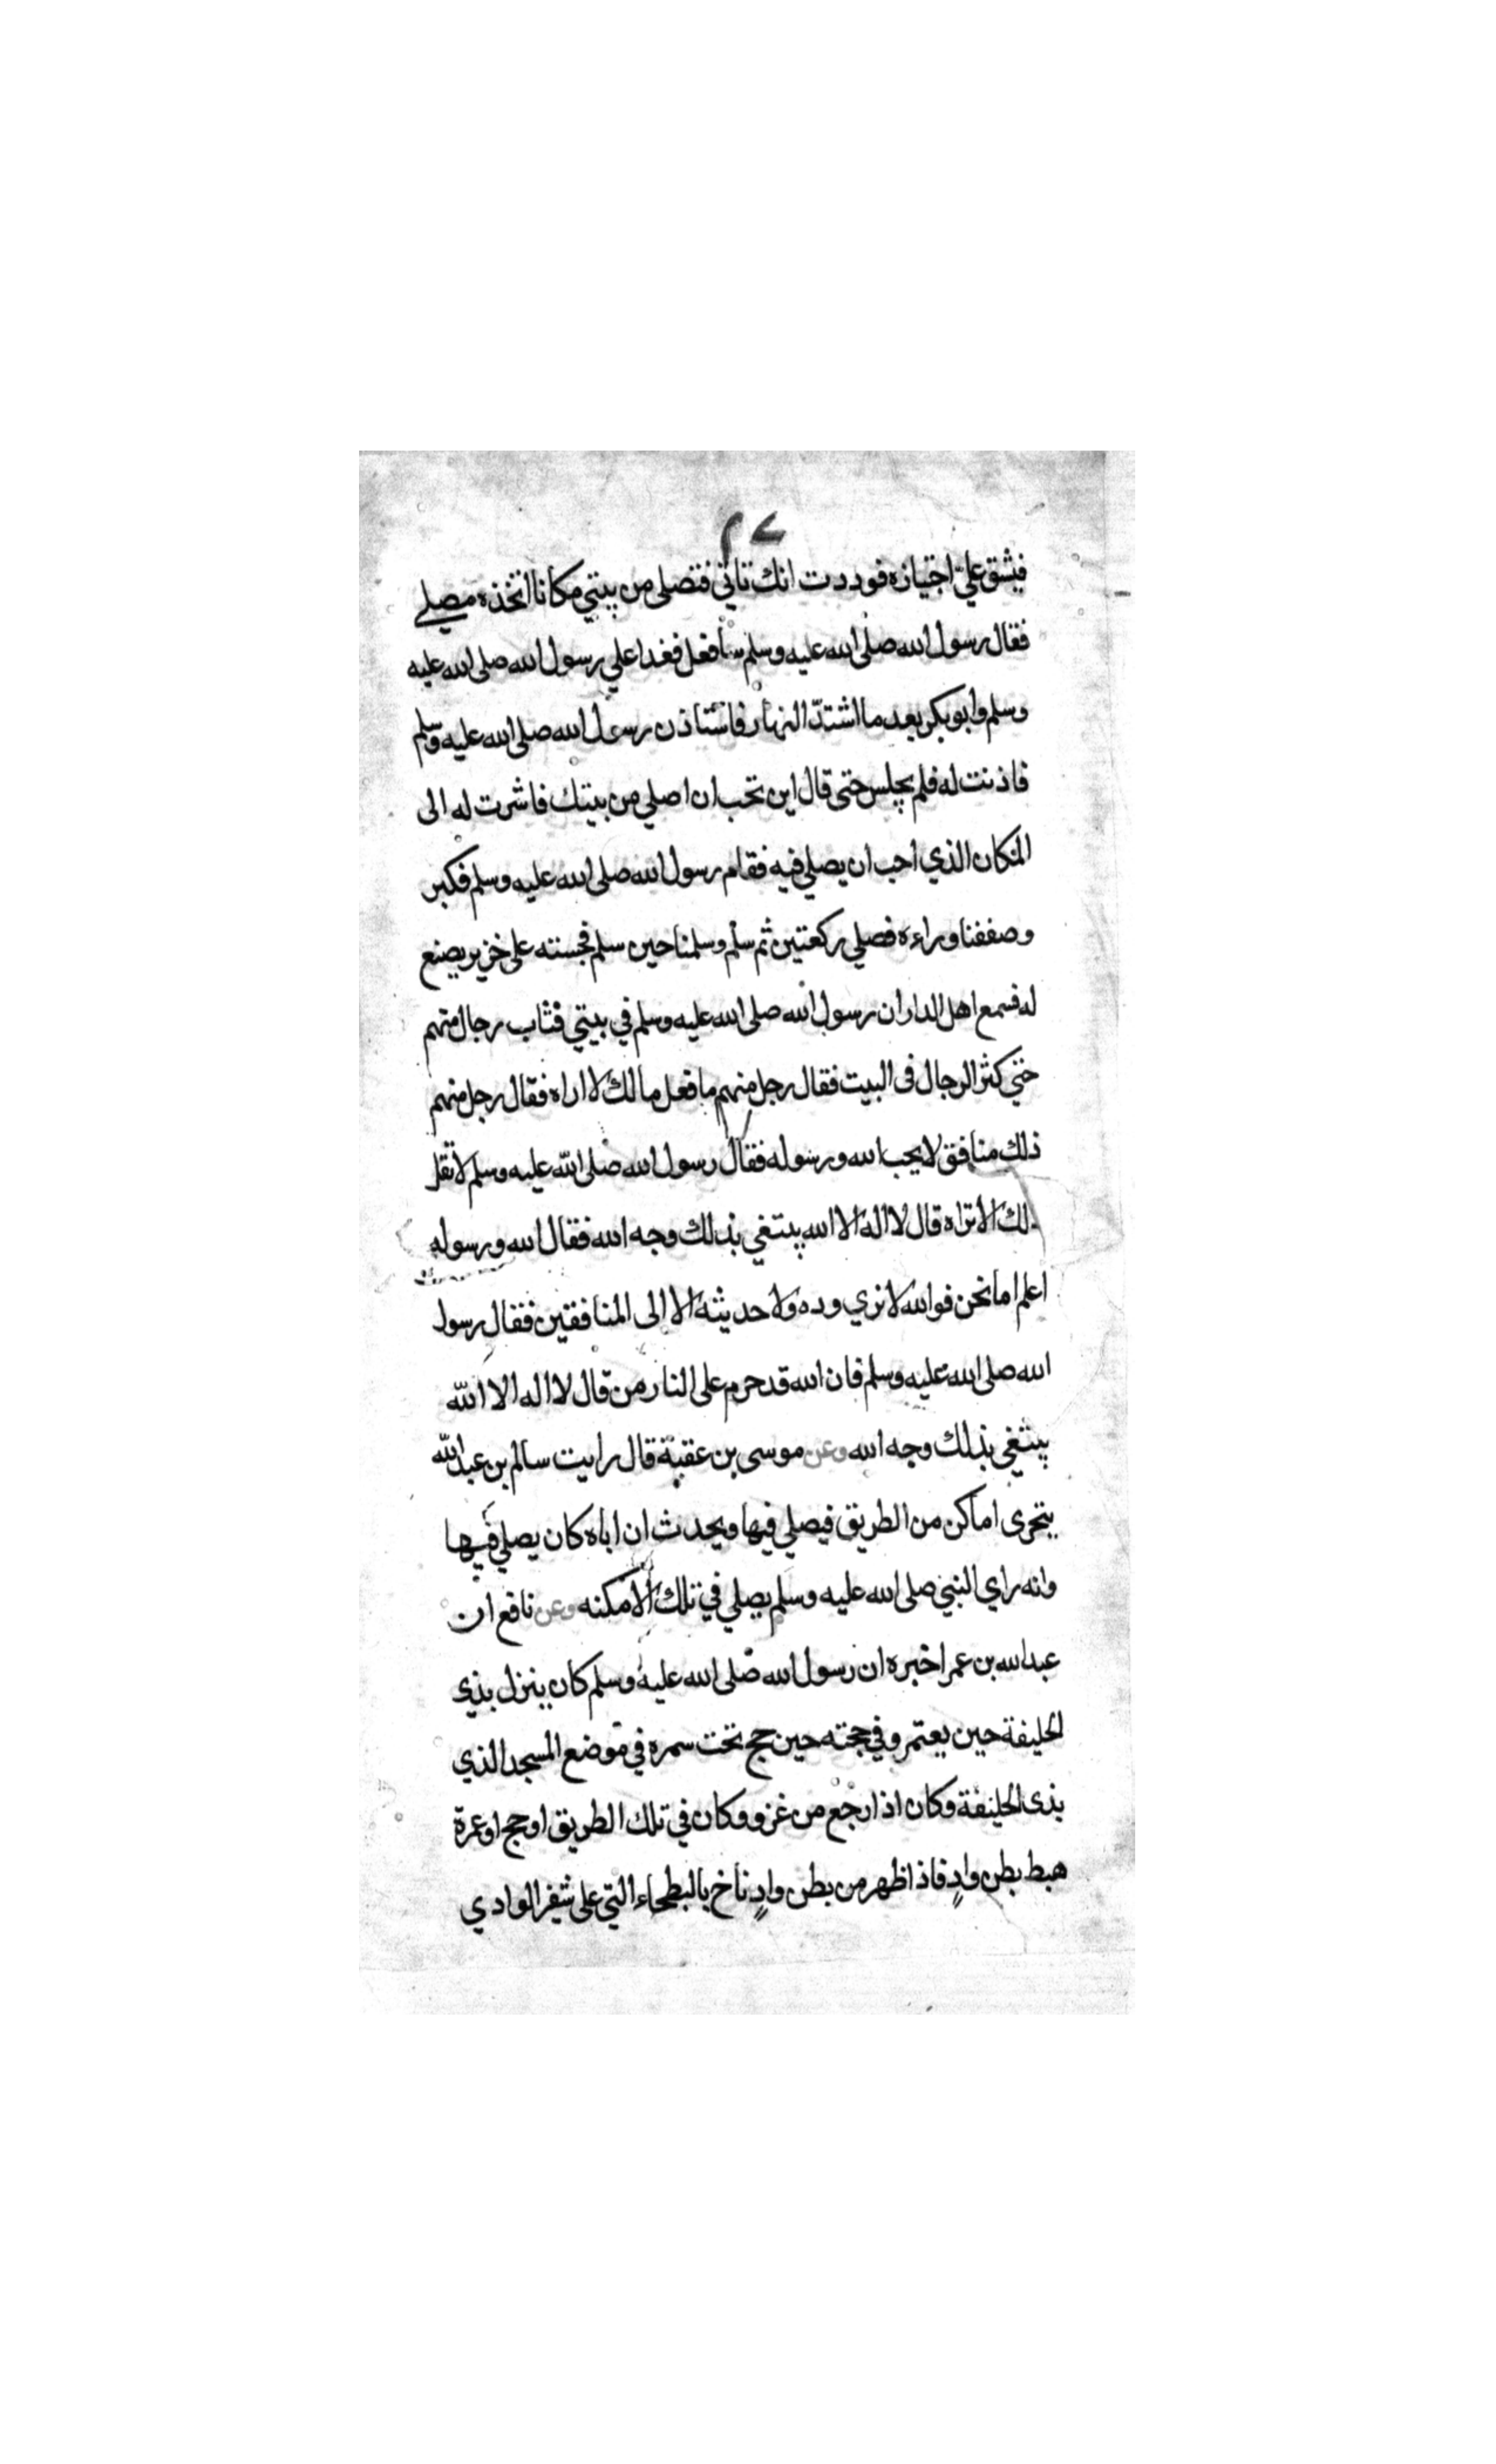 فيشق عليّ اجتيازه فوددت انك تاتي فتصلى من بيتي مكانا اتخذه مصلى
فقال رسول الله صلى الله عليه وسلم سافعل فغدا علي رسول الله صلى الله عليه
وسلم وابو بكر بعد ما اشتدّ النهار فاستاذن رسول الله صلى الله عليه وسلم
فاذنت له فلم يجلس حتى قال اين تحب ان اصلي من بيتك فاشرت له الى
المكان الذي احب ان يصلي فيه فقام رسول الله صلى الله عليه وسلم فكبر
وصففنا وراءه فصلي ركعتين ثم سلم وسلمنا حين سلم فحبسته على خزير يصنع
له فسمع اهل الدار ان رسول الله صلى الله عليه وسلم في بيتي فثاب رجال منهم
حتي كثر الرجال فى البيت فقال رجل منهم ما فعل مالك لا اراه فقال رجل منهم
ذلك منافق لا يحب الله ورسوله فقال رسول الله صلى الله عليه وسلم لا تقل
ذلك الا تراه قال لا اله الا الله يبتغي بذلك وجه الله فقال الله ورسوله
اعلم اما نحن فوالله لا نري وده ولا حديثه الا الى المنافقين فقال رسول
الله صلى الله عليه وسلم فان الله قد حرم على النار من قال لا اله الا الله
يبتغي بذلك وجه الله وعن موسى بن عقبة قال رايت سالم بن عبد الله
يتحرى اماكن من الطريق فيصلي فيها ويحدث ان اباه كان يصلي فيها
وانه راي النبي صلى الله عليه وسلم يصلي في تلك الامكنه وعن نافع ان
عبد الله بن عمر اخبره ان رسول الله صلى الله عليه وسلم كان ينزل بذي
الحليفة حين يعتمر وفي حجته حين حج تحت سمره في موضع المسجد الذي
بذى الحليفة وكان اذا رجع من غزو وكان في تلك الطريق او حج او عمرة
هبط بطن وادٍ فاذا ظهر من بطن وادٍ ناخ بالبطحاء التي على شفير الوادي